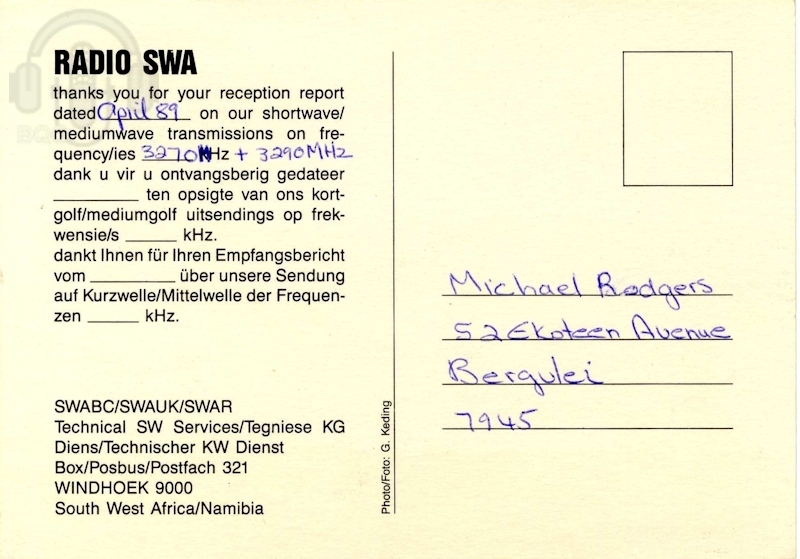 RADIO SWA
thanks you for your reception report
dated April 89 on our shortwave/
mediumwave transmissions on fre-
quency/ies 3270 MHz + 3290 MHz
dank u vir u ontvangsberig gedateer
__________ ten opsigte van ons kort-
golf/mediumgolf uitsendings op frek-
wensie/s ______ kHz.
dankt Ihnen für Ihren Empfangsbericht
vom __________ über unsere Sendung
auf Kurzwelle/Mittelwelle der Frequen-
zen ______ kHz.
SWABC/SWAUK/SWAR
Technical SW Services/Tegniese KG
Diens/Technischer KW Dienst
Box/Posbus/Postfach 321
WINDHOEK 9000
South West Africa/Namibia
Photo/Foto: G. Keding
Michael Rodgers
52 Ekoteen Avenue
Bergvlei
7945